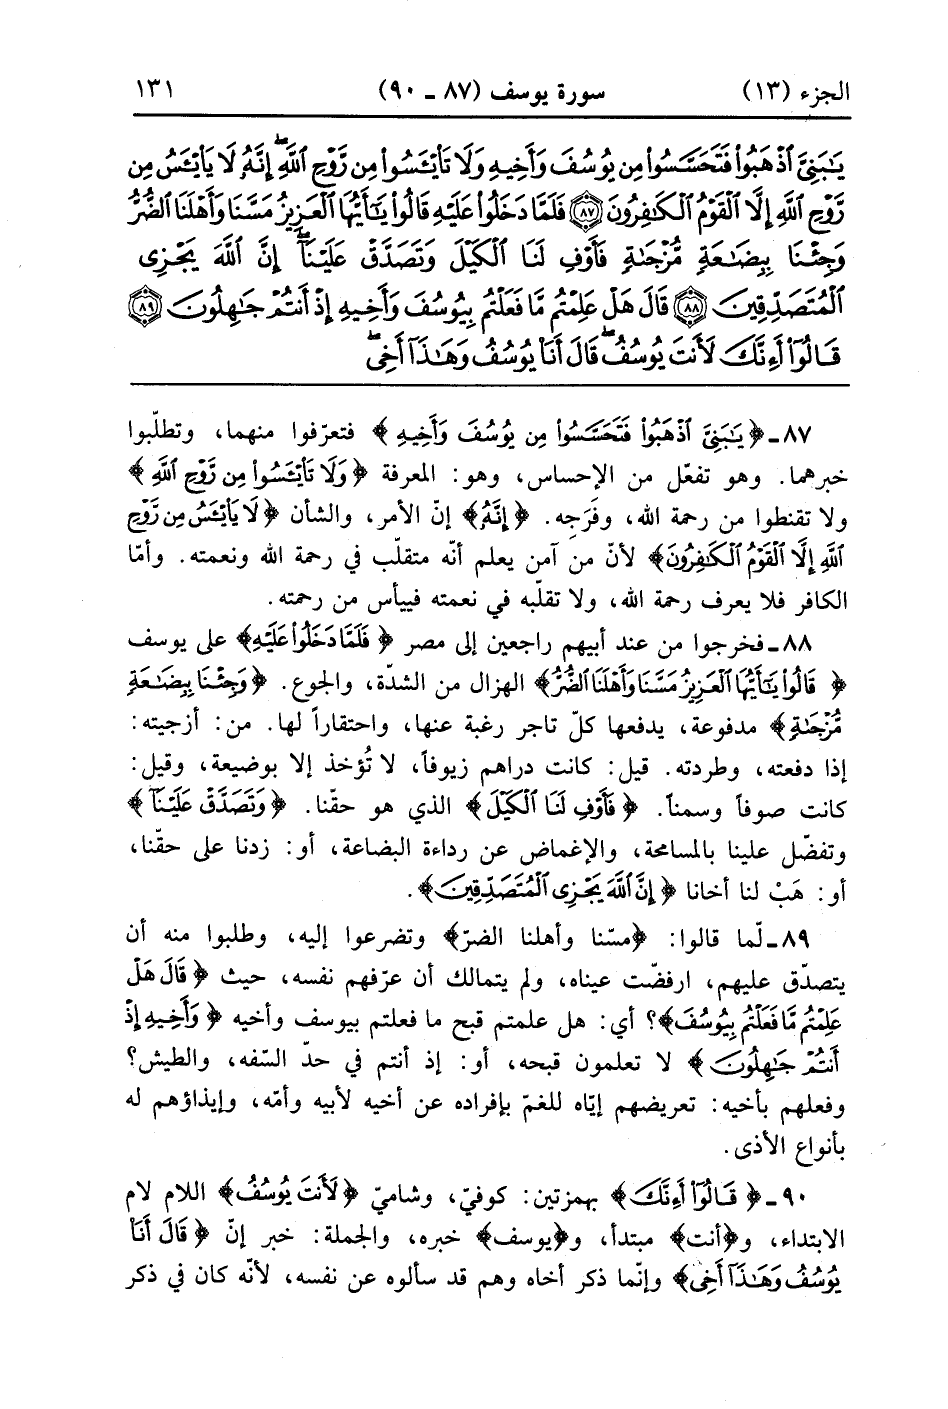 الجزء (١٣) سورة يوسف (٨٧ ـ ٩٠) ١٣١
يَٰبَنِيَّ ٱذْهَبُوا۟ فَتَحَسَّسُوا۟ مِن يُوسُفَ وَأَخِيهِ وَلَا تَا۟يْـَٔسُوا۟ مِن رَّوْحِ ٱللَّهِ ۖ إِنَّهُۥ لَا يَا۟يْـَٔسُ مِن
رَّوْحِ ٱللَّهِ إِلَّا ٱلْقَوْمُ ٱلْكَٰفِرُونَ ﴿٨٧﴾ فَلَمَّا دَخَلُوا۟ عَلَيْهِ قَالُوا۟ يَٰٓأَيُّهَا ٱلْعَزِيزُ مَسَّنَا وَأَهْلَنَا ٱلضُّرُّ
وَجِئْنَا بِبِضَٰعَةٍ مُّزْجَىٰةٍ فَأَوْفِ لَنَا ٱلْكَيْلَ وَتَصَدَّقْ عَلَيْنَآ ۖ إِنَّ ٱللَّهَ يَجْزِى
ٱلْمُتَصَدِّقِينَ ﴿٨٨﴾ قَالَ هَلْ عَلِمْتُم مَّا فَعَلْتُم بِيُوسُفَ وَأَخِيهِ إِذْ أَنتُمْ جَٰهِلُونَ ﴿٨٩﴾
قَالُوٓا۟ أَءِنَّكَ لَأَنتَ يُوسُفُ ۖ قَالَ أَنَا۠ يُوسُفُ وَهَٰذَآ أَخِى ۖ
٨٧ ـ ﴿يَٰبَنِيَّ ٱذْهَبُوا۟ فَتَحَسَّسُوا۟ مِن يُوسُفَ وَأَخِيهِ﴾ فتعرّفوا منهما، وتطلّبوا
خبرهما. وهو تفعّل من الإحساس، وهو: المعرفة ﴿وَلَا تَا۟يْـَٔسُوا۟ مِن رَّوْحِ ٱللَّهِ﴾
ولا تقنطوا من رحمة الله، وفَرَجِه. ﴿إِنَّهُۥ﴾ إنّ الأمر، والشأن ﴿لَا يَا۟يْـَٔسُ مِن رَّوْحِ
ٱللَّهِ إِلَّا ٱلْقَوْمُ ٱلْكَٰفِرُونَ﴾ لأنّ من آمن يعلم أنّه متقلّب في رحمة الله ونعمته. وأمّا
الكافر فلا يعرف رحمة الله، ولا تقلّبه في نعمته فييأس من رحمته.
٨٨ ـ فخرجوا من عند أبيهم راجعين إلى مصر ﴿فَلَمَّا دَخَلُوا۟ عَلَيْهِ﴾ على يوسف
﴿قَالُوا۟ يَٰٓأَيُّهَا ٱلْعَزِيزُ مَسَّنَا وَأَهْلَنَا ٱلضُّرُّ﴾ الهزال من الشدّة، والجوع. ﴿وَجِئْنَا بِبِضَٰعَةٍ
مُّزْجَىٰةٍ﴾ مدفوعة، يدفعها كلّ تاجر رغبة عنها، واحتقاراً لها. من: أزجيته:
إذا دفعته، وطردته. قيل: كانت دراهم زيوفاً، لا تُؤخذ إلا بوضيعة، وقيل:
كانت صوفاً وسمناً. ﴿فَأَوْفِ لَنَا ٱلْكَيْلَ﴾ الذي هو حقّنا. ﴿وَتَصَدَّقْ عَلَيْنَآ﴾
وتفضّل علينا بالمسامحة، والإغماض عن رداءة البضاعة، أو: زدنا على حقّنا،
أو: هَبْ لنا أخانا ﴿إِنَّ ٱللَّهَ يَجْزِى ٱلْمُتَصَدِّقِينَ﴾.
٨٩ ـ لّما قالوا: ﴿مسّنا وأهلنا الضرّ﴾ وتضرعوا إليه، وطلبوا منه أن
يتصدّق عليهم، ارفضّت عيناه، ولم يتمالك أن عرّفهم نفسه، حيث ﴿قَالَ هَلْ
عَلِمْتُم مَّا فَعَلْتُم بِيُوسُفَ﴾؟ أي: هل علمتم قبح ما فعلتم بيوسف وأخيه ﴿وَأَخِيهِ إِذْ
أَنتُمْ جَٰهِلُونَ﴾ لا تعلمون قبحه، أو: إذ أنتم في حدّ السّفه، والطيش؟
وفعلهم بأخيه: تعريضهم إيّاه للغمّ بإفراده عن أخيه لأبيه وأمّه، وإيذاؤهم له
بأنواع الأذى.
٩٠ ـ ﴿قَالُوٓا۟ أَءِنَّكَ﴾ بهمزتين: كوفيّ، وشاميّ ﴿لَأَنتَ يُوسُفُ﴾ اللام لام
الابتداء، و﴿أنت﴾ مبتدأ، و﴿يوسف﴾ خبره، والجملة: خبر إنّ ﴿قَالَ أَنَا۠
يُوسُفُ وَهَٰذَآ أَخِى﴾ وإنّما ذكر أخاه وهم قد سألوه عن نفسه، لأنّه كان في ذكر